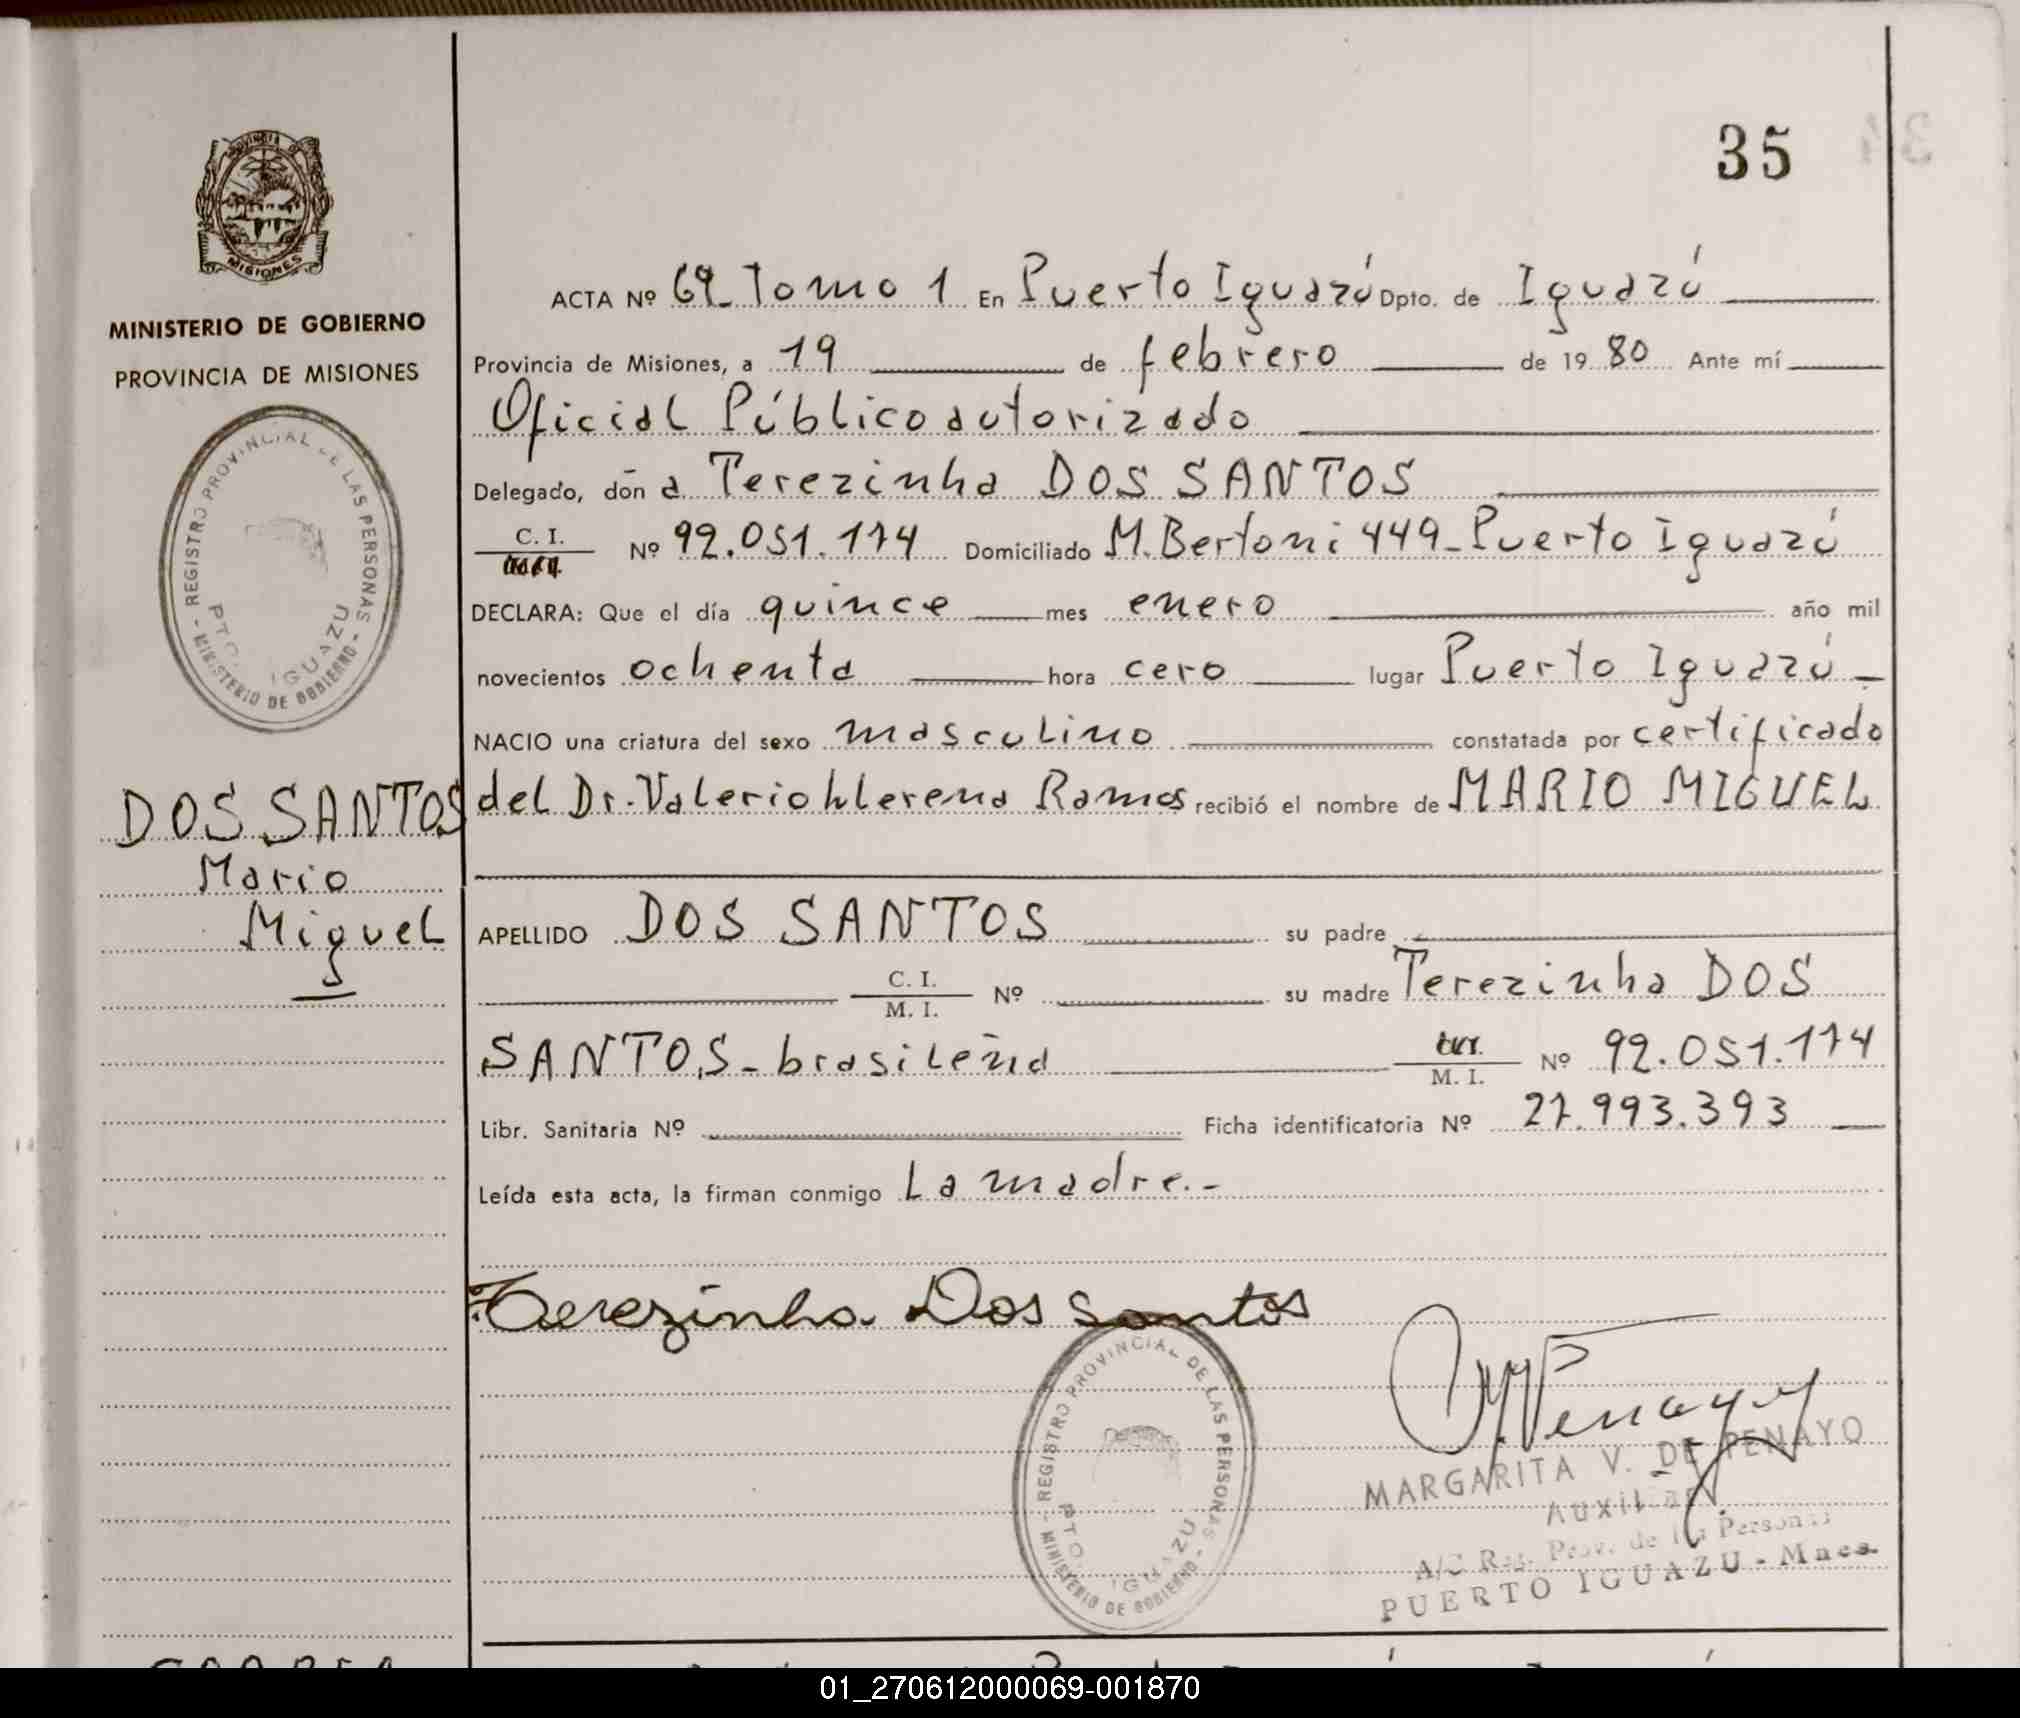 35
PROVINCIA DE
MISIONES
MINISTERIO DE GOBIERNO
PROVINCIA DE MISIONES
REGISTRO PROVINCIAL DE LAS PERSONAS - MINISTERIO DE GOBIERNO -
PTO. IGUAZU
DOS SANTOS
Mario
Miguel
ACTA Nº 69_Tomo 1 En Puerto Iguazú Dpto. de Iguazú
Provincia de Misiones, a 19 de febrero de 1980 Ante mí
Oficial Público autorizado
Delegado, doña Terezinha DOS SANTOS
C. I. Nº 92.051.174 Domiciliado M. Bertoni 449_Puerto Iguazú
DECLARA: Que el día quince mes enero año mil
novecientos ochenta hora cero lugar Puerto Iguazú_
NACIO una criatura del sexo masculino constatada por certificado
del Dr. Valerio Llerena Ramos recibió el nombre de MARIO MIGUEL
APELLIDO DOS SANTOS su padre
C. I.
M. I. Nº su madre Terezinha DOS
SANTOS_brasileña M. I. Nº 92.051.174
Libr. Sanitaria Nº Ficha identificatoria Nº 27.993.393
Leída esta acta, la firman conmigo La madre.-
Terezinha Dos Santos
REGISTRO PROVINCIAL DE LAS PERSONAS - MINISTERIO DE GOBIERNO -
PTO. IGUAZU
MARGARITA V. DE PENAYO
AUXILIAR
A/C Reg. Prov. de las Personas
PUERTO IGUAZU - Mnes.
01_270612000069-001870